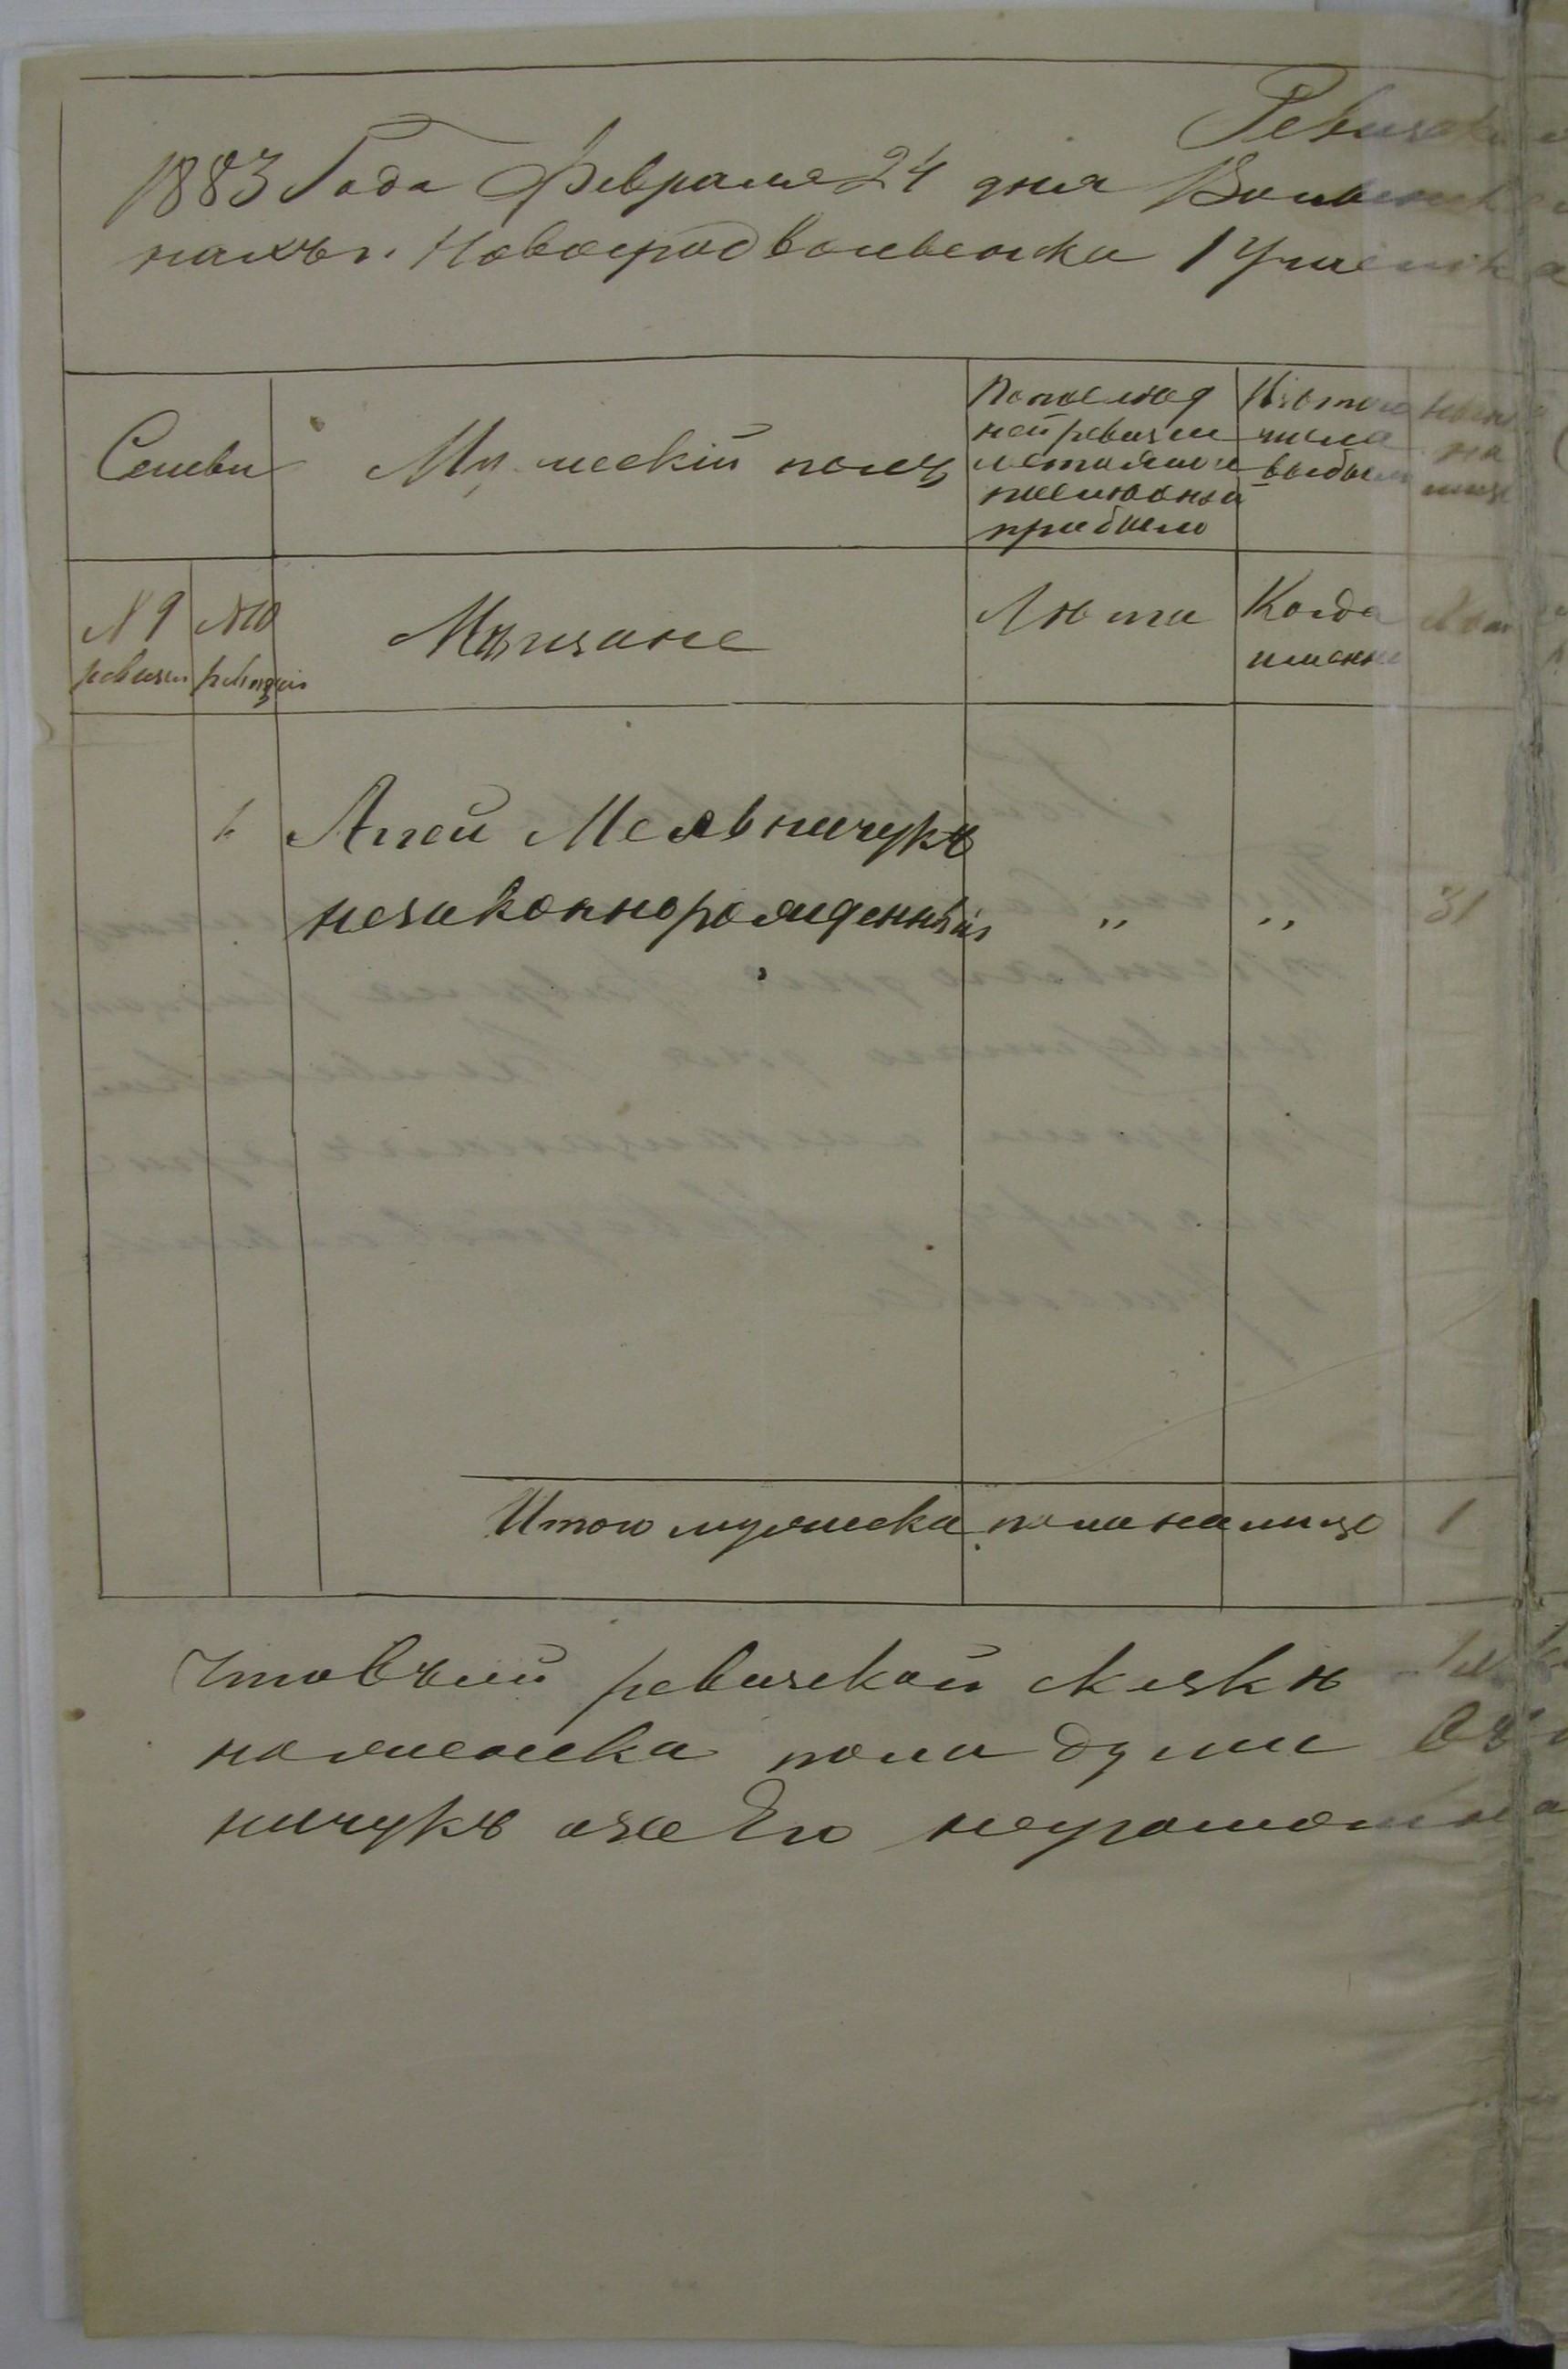 Ревизская
1883 Года Февраля 24 дня Волынской
нахъ г. Новоградволынска 1 Участка
Семьи
Мужескій полъ
По послѣд
ней ревизіи
состояло и
послѣ оной
прибыло
Изъ того
числа
выбыло
Нынѣ
на
лице
№ 9
ревизіи
№ 10
ревизіи
Мѣщане
Лѣта
Когда
именно
Лѣта
1. Агей Мельничукъ
незаконнорожденный „ „ 31
Итого мужеска пола налицо 1
Что въ сей ревизской сказкѣ
но женска пола души
ничукъ а за Его неграмотна